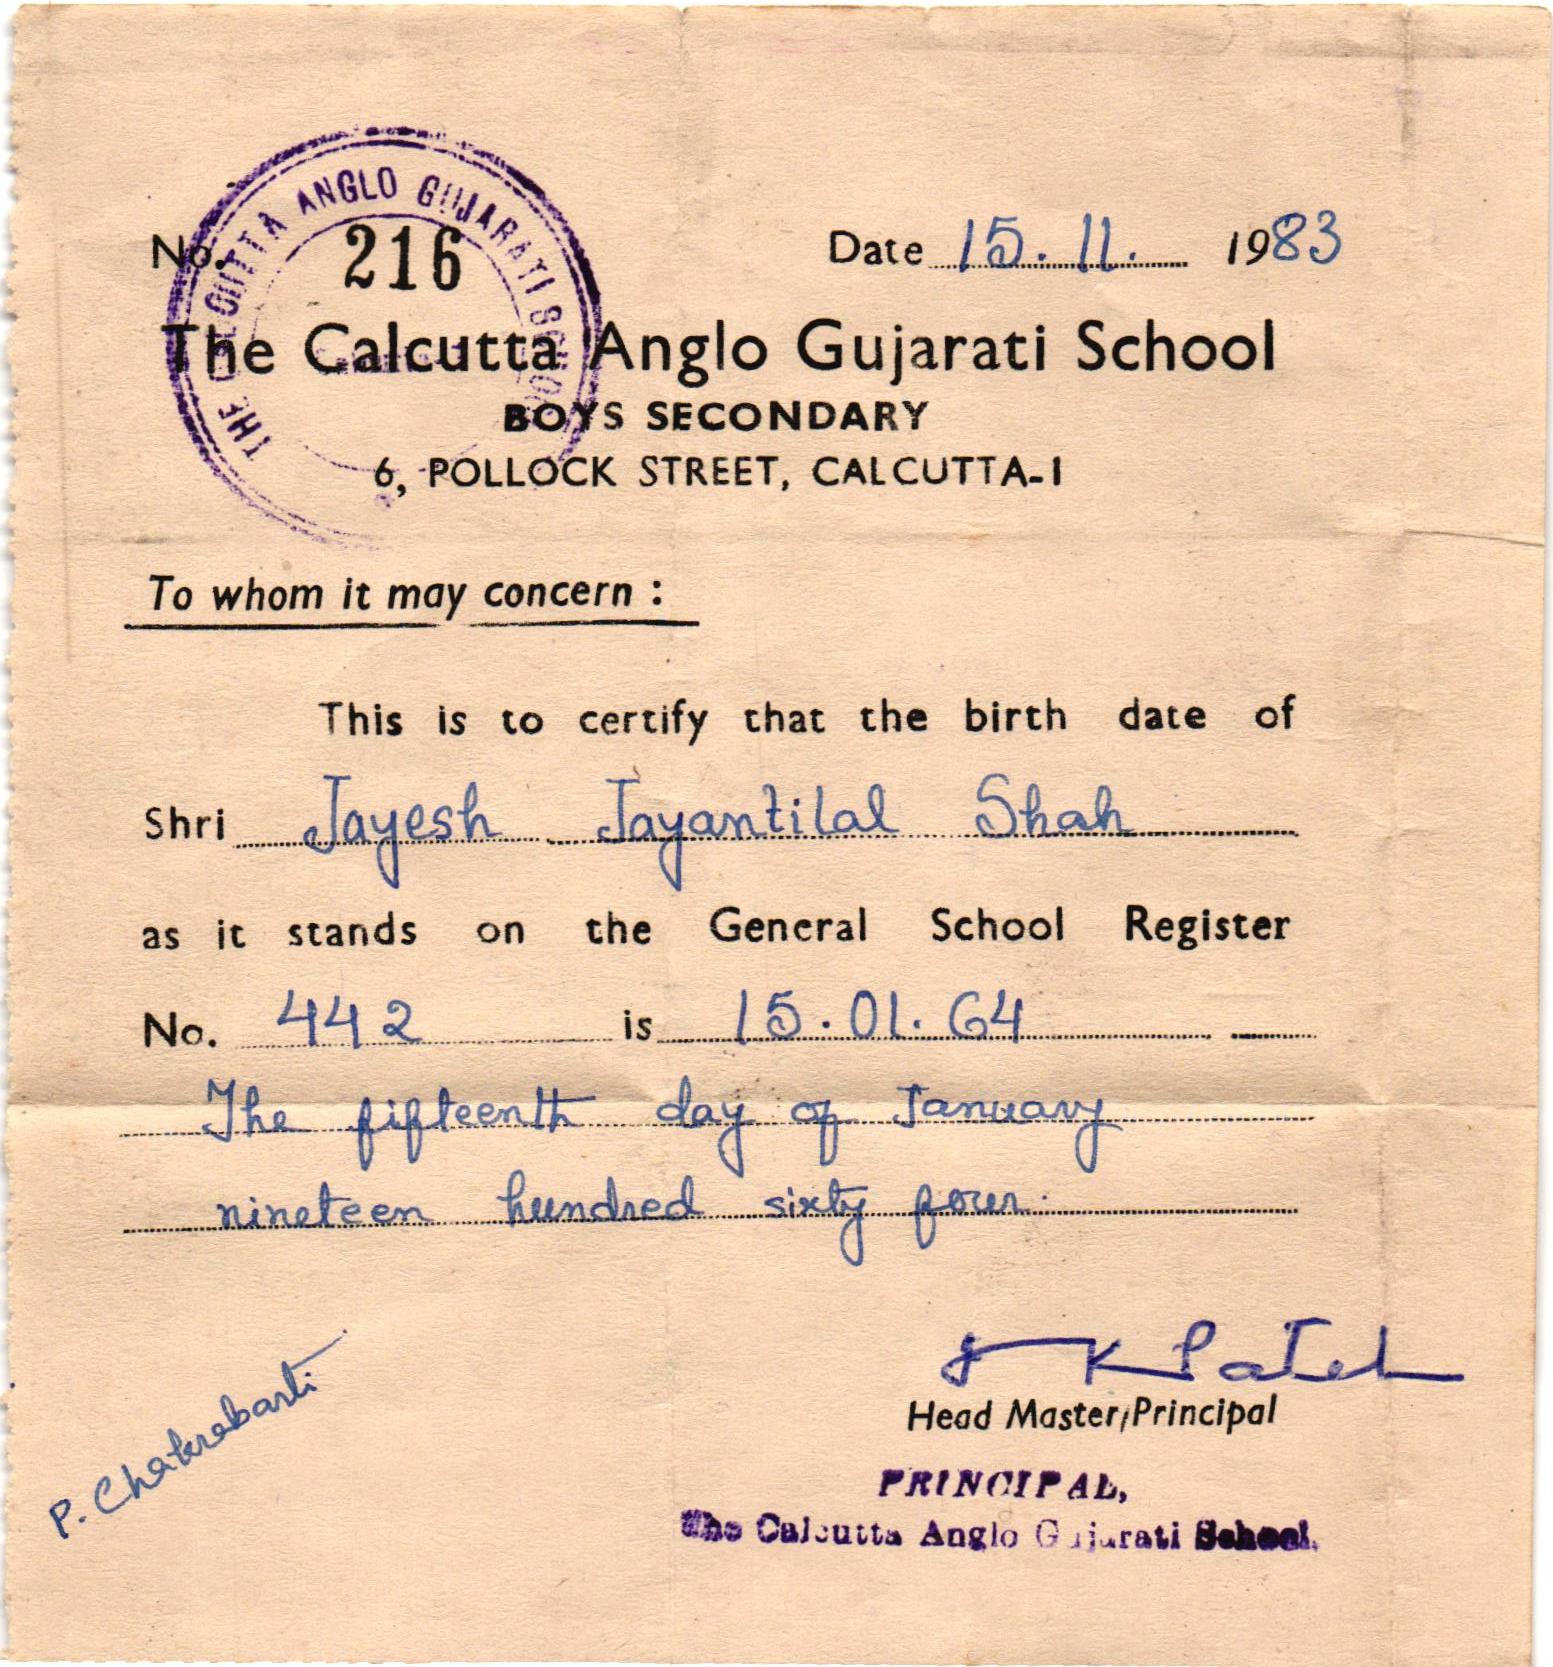 THE CALCUTTA ANGLO GUJARATI SCHOOL
No. 216 Date 15.11. 1983
The Calcutta Anglo Gujarati School
BOYS SECONDARY
6, POLLOCK STREET, CALCUTTA-1
To whom it may concern :
This is to certify that the birth date of
Shri Jayesh Jayantilal Shah
as it stands on the General School Register
No. 442 is 15.01.64
The fifteenth day of January
nineteen hundred sixty four.
K Patel
Head Master/Principal
P. Chakrabarti
PRINCIPAL,
The Calcutta Anglo Gujarati School.